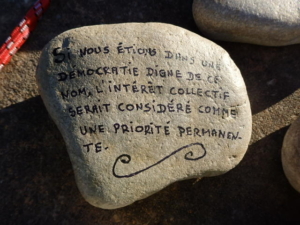 SI NOUS ÉTIONS DANS UNE
DÉMOCRATIE DIGNE DE CE
NOM, L'INTÉRÊT COLLECTIF
SERAIT CONSIDÉRÉ COMME
UNE PRIORITÉ PERMANEN-
TE.